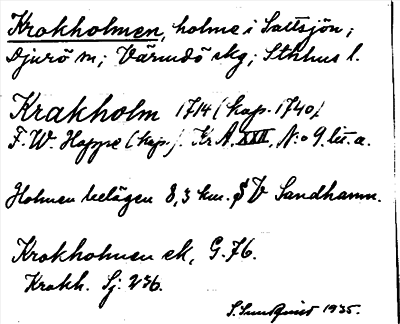 Krokholmen, holme i Saltsjön;
Djurö sn; Värmdö skg; Sthlms l.
Krakholm 1714 (kop. 1740)
F. W. Hoppe (kop.). Kr A. XXII, N:o 9. lit. a.
Holmen belägen 8,3 km. S V Sandhamn.
Krokholmen ek, G. 76.
Krokh. Sj: 236.
S. Sundquist 1935.